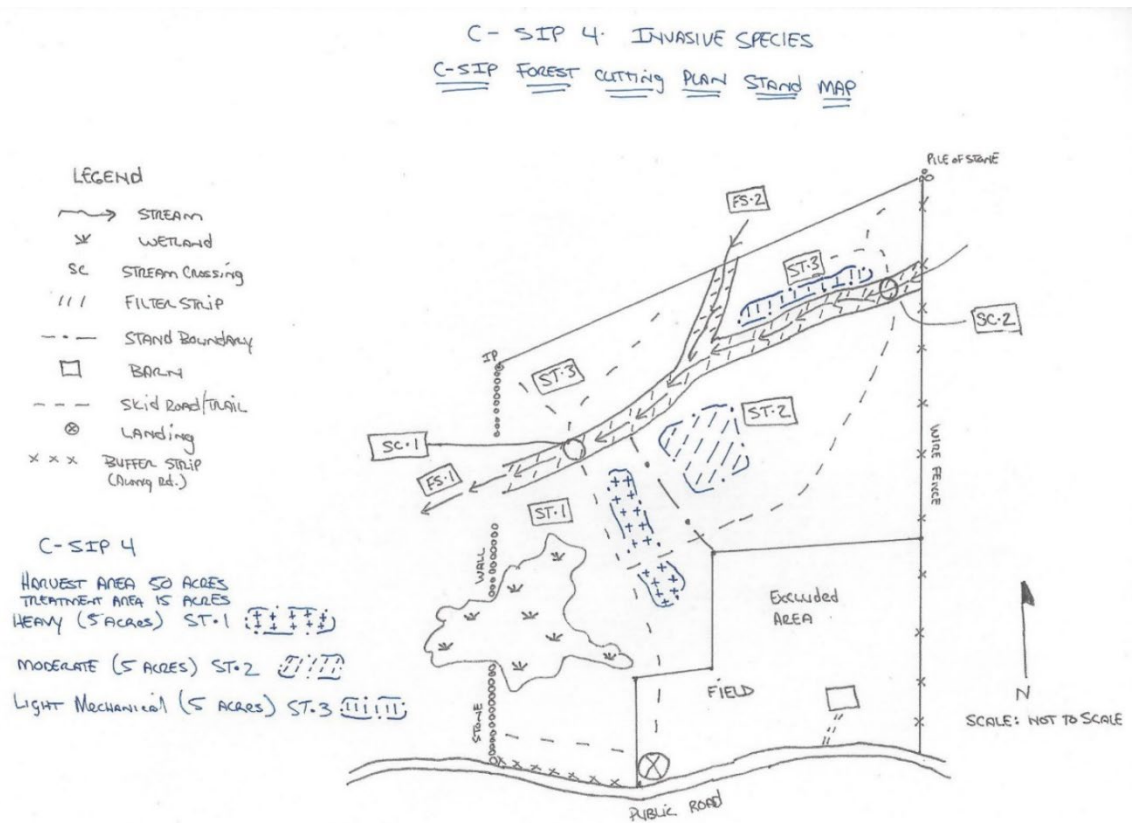 C-SIP 4. INVASIVE SPECIES
C-SIP FOREST CUTTING PLAN STAND MAP
LEGEND
STREAM
WETLAND
SC STREAM CROSSING
FILTER STRIP
STAND BOUNDARY
BARN
SKID ROAD/TRAIL
LANDING
x x x BUFFER STRIP
(ALONG RD.)
C-SIP 4
HARVEST AREA 50 ACRES
TREATMENT AREA 15 ACRES
HEAVY (5 ACRES) ST.1
MODERATE (5 ACRES) ST.2
LIGHT MECHANICAL (5 ACRES) ST.3
PILE OF STONE
FS.2
ST.3
SC.2
IP
ST.3
ST.2
SC.1
FS.1
ST.1
WIRE FENCE
WALL
EXCLUDED
AREA
FIELD
STONE
N
SCALE: NOT TO SCALE
PUBLIC ROAD